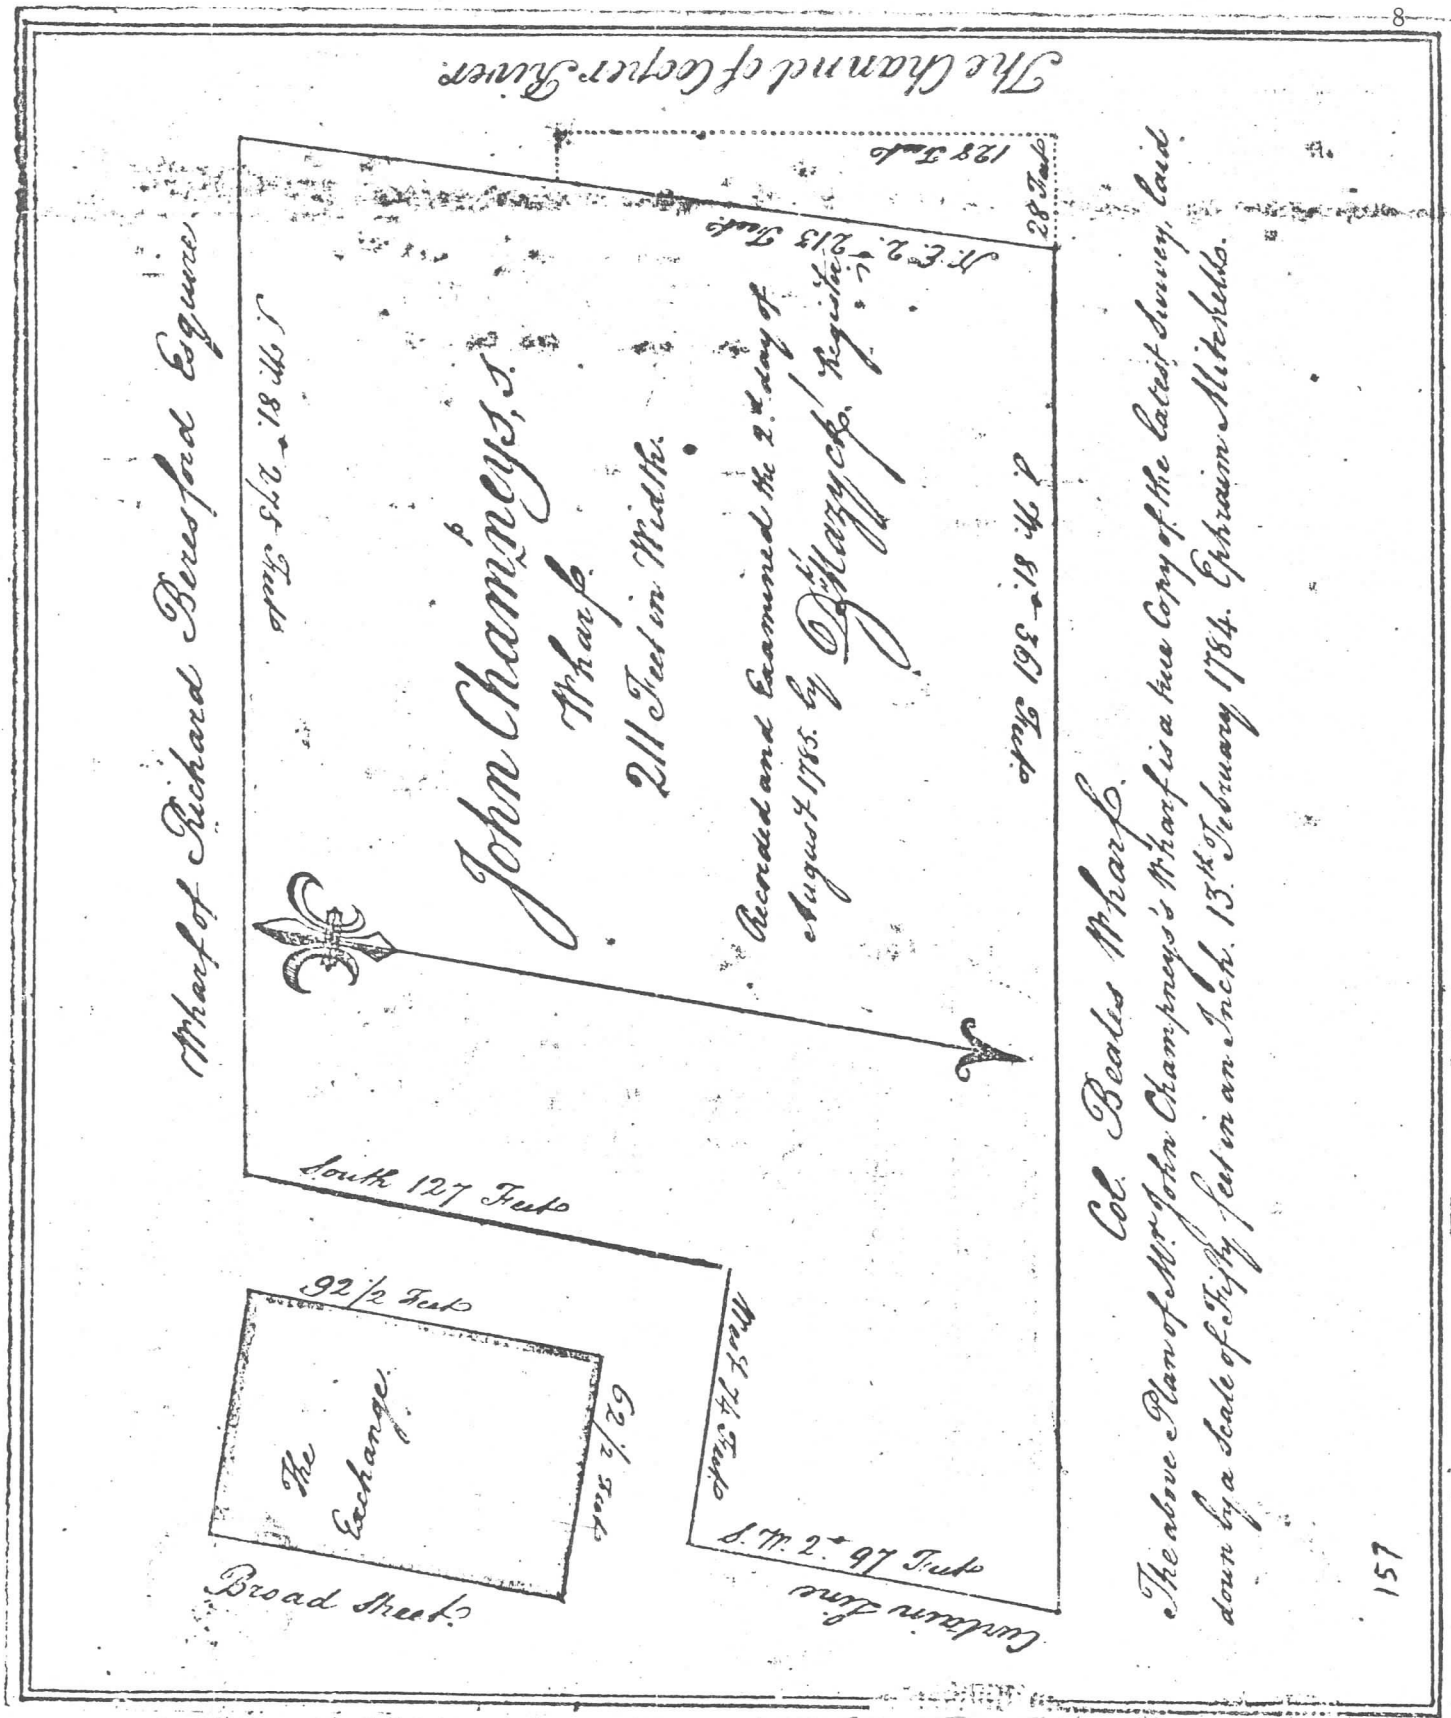 8
The Channel of Cooper River.
Wharf of Richard Beresford Esquire.
S. W. 81.° 275 Feet
128 Feet
28 Feet
N. E. 2.° 213 Feet
John Champneys,s.
Wharf
211 Feet in Width.
Recorded and Examined the 2.d day of
August 1785. by D. Mazyck, Register
S. W. 81.° 361 Feet
South 127 Feet
92 1/2 Feet
The
Exchange.
62 1/2 Feet
West 74 Feet
S. W. 2.° 97 Feet
Curtain Line
Broad Street.
Col. Beales Wharf.
The above Plan of Mr. John Champneys's Wharf is a true Copy of the latest Survey, laid
down by a Scale of Fifty feet in an Inch. 13.th February 1784. Ephraim Mitchell.
157